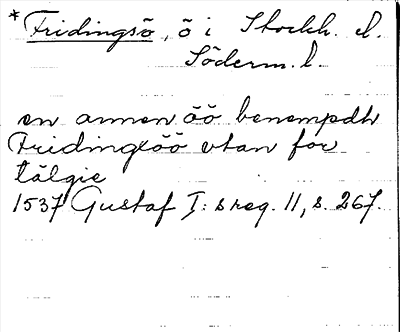 *Fridingsö, ö i Stockh. el.
Söderm. l.
en annen öö benempdh
Fridingxöö vtan for
tälgie
1537 Gustaf I:s reg. 11, s. 267.